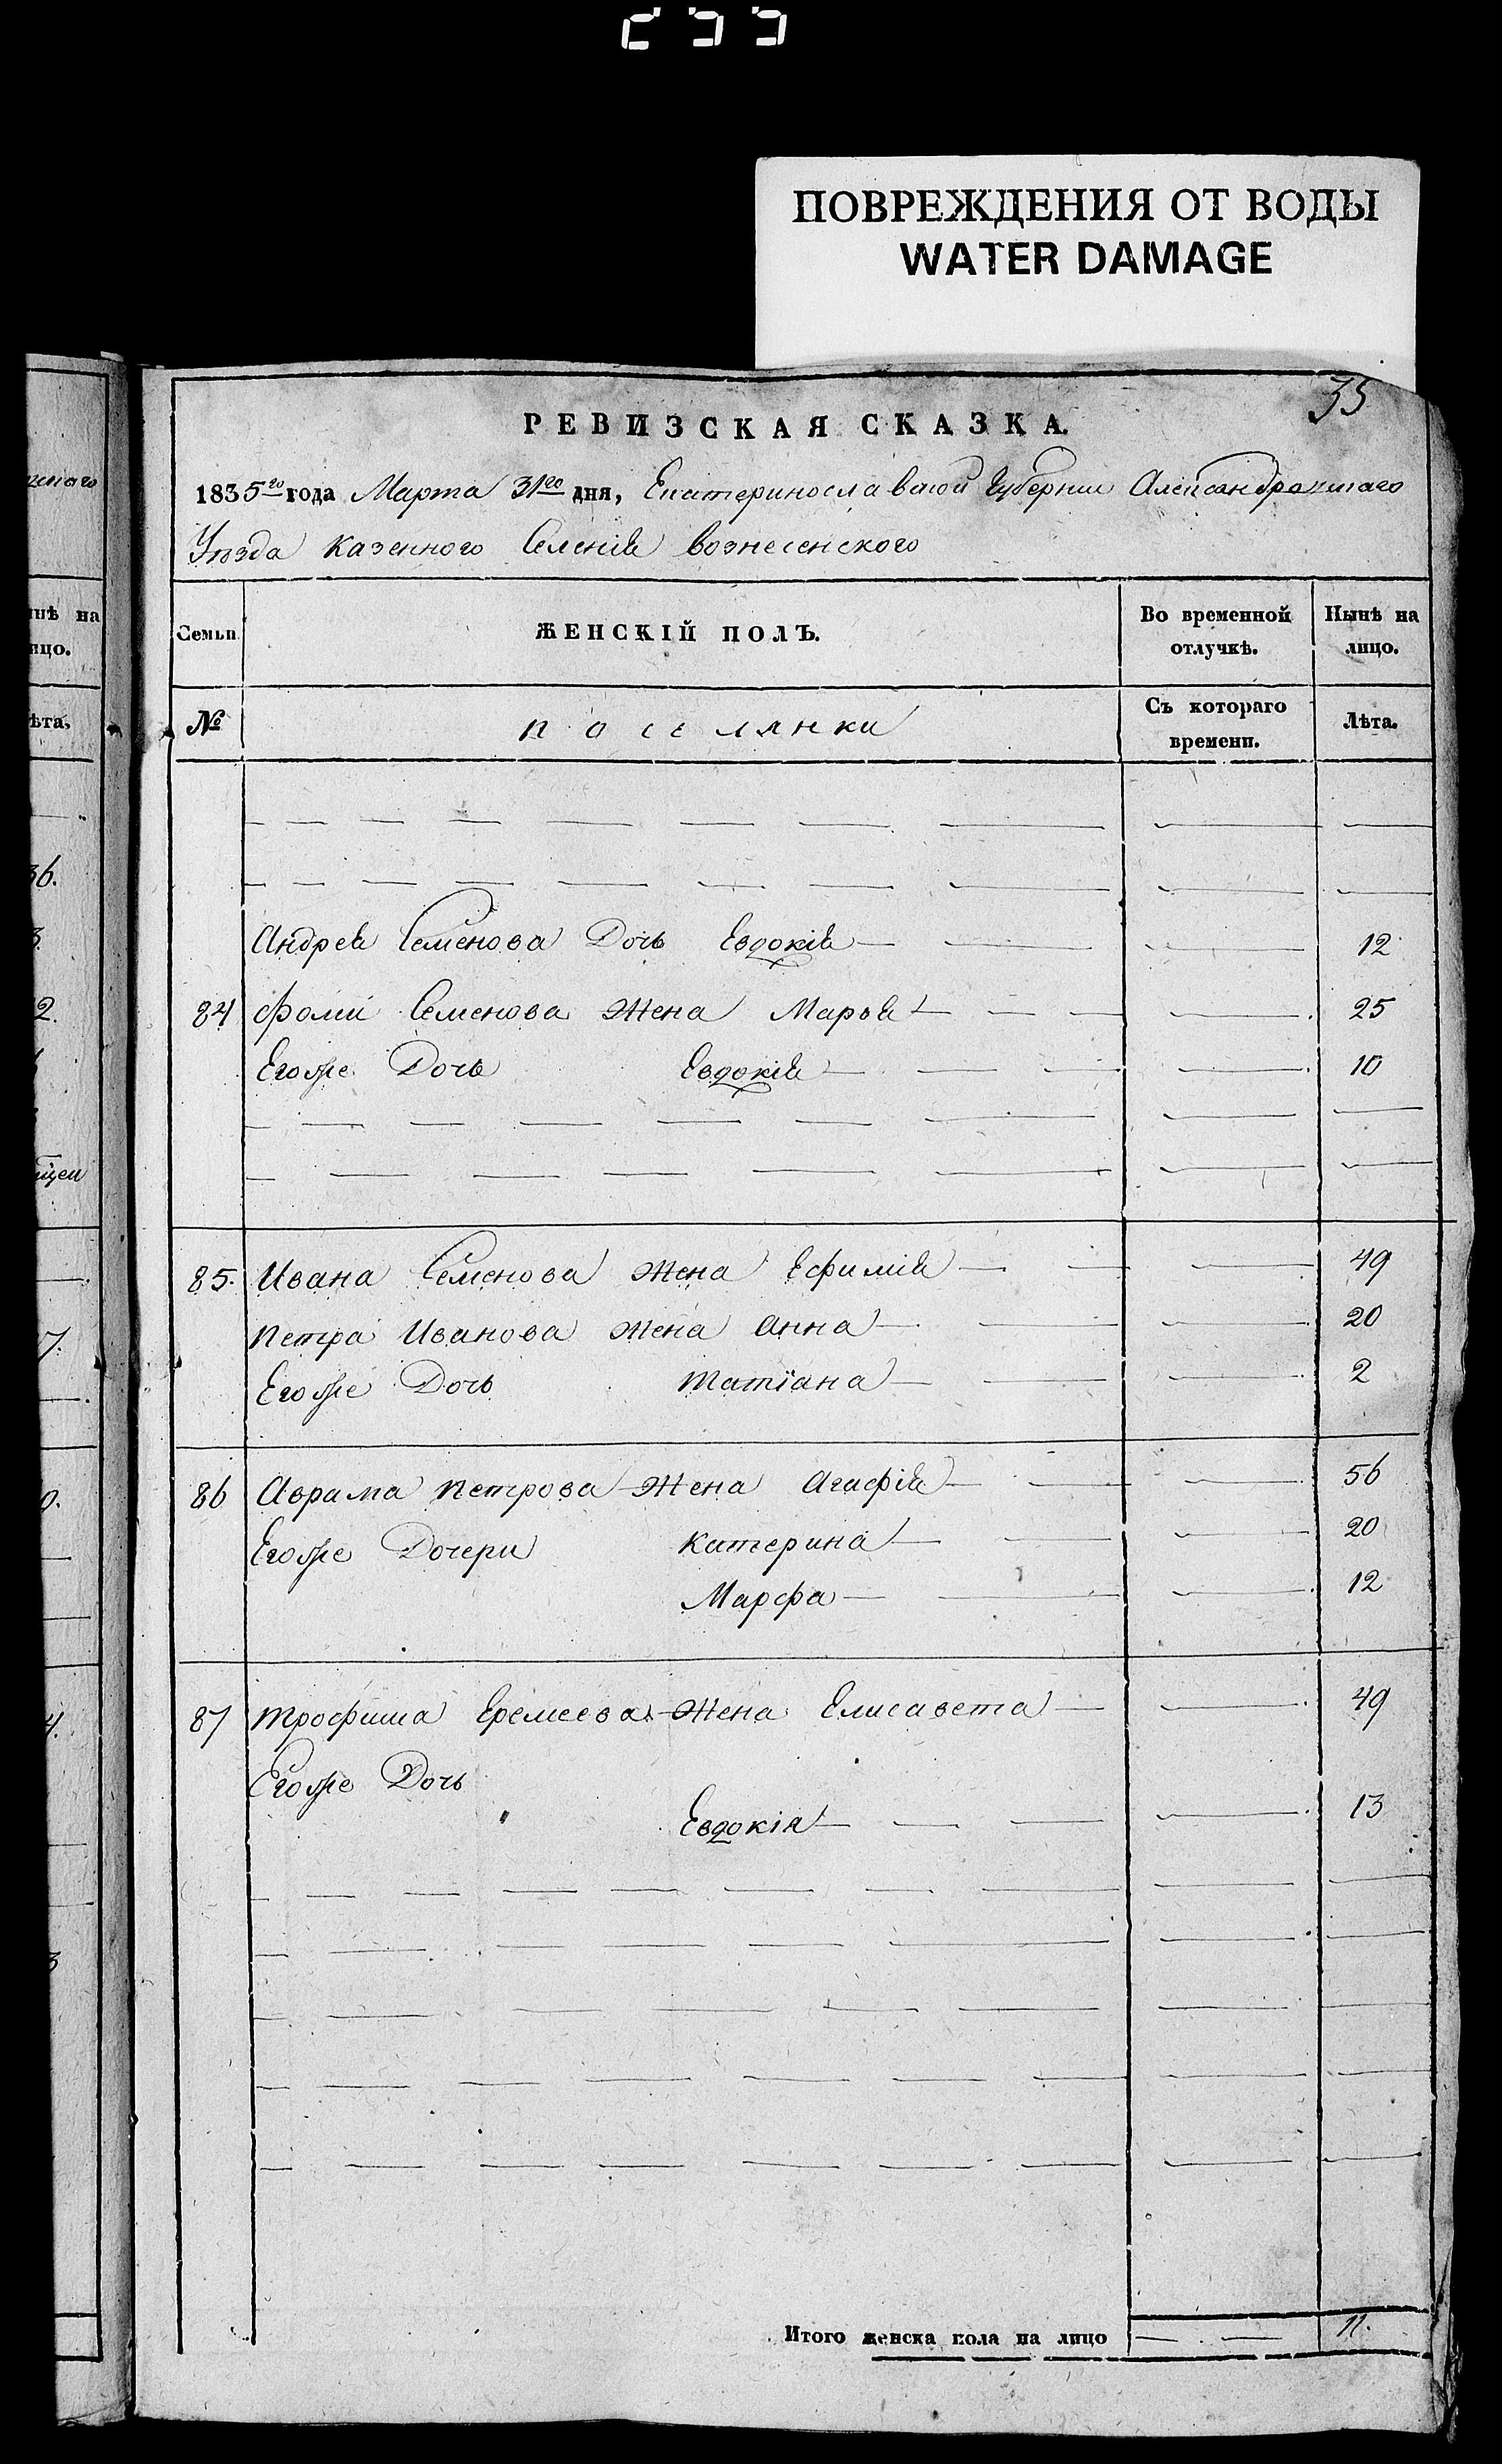 ПОВРЕЖДЕНИЯ ОТ ВОДЫ
WATER DAMAGE
35
РЕВИЗСКАЯ СКАЗКА.
1835го года Марта 31го дня, Екатеринославской Губернии Александровскаго
Уѣзда Казенного Селенія Вознесенского
Семьи
ЖЕНСКІЙ ПОЛЪ.
Во временной отлучкѣ.
Нынѣ на лицо.
№
поселянки
Съ котораго времени.
Лѣта.
Андрея Семенова Дочь Евдокія 12
84 Фоми Семенова Жена Марья 25
Егоже Дочь Евдокія 10
85. Ивана Семенова Жена Ефимія 49
Петра Иванова Жена Анна 20
Егоже Дочь Татіана 2
86 Аврама Петрова Жена Агафія 56
Егоже Дочери Катерина 20
Марфа 12
87 Трофима Еремеева Жена Елисавета 49
Егоже Дочь
Евдокія 13
Итого женска пола на лицо 11.